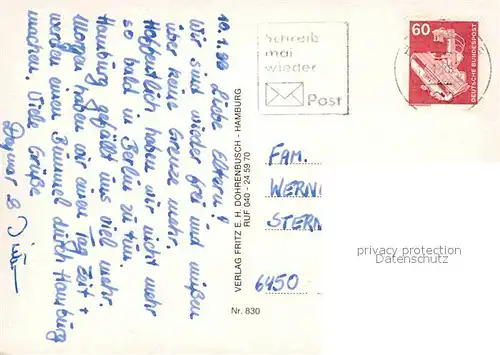 10.1.80
Liebe Eltern!
Wir sind wieder frei und müssen
über keine Grenze mehr.
Hoffentlich haben wir nicht mehr
so bald in Berlin zu tun.
Hamburg gefällt uns viel mehr.
Morgen haben wir einen Tag Zeit +
werden einen Bummel durch Hamburg
machen. Viele Grüße
Dagmar &
VERLAG FRITZ E. H. DOHRENBUSCH - HAMBURG
RUF 040 - 24 59 70
Nr. 830
Schreib
mal
wieder
Post
60
DEUTSCHE BUNDESPOST
FAM.
WERN
STERN
6450
privacy protection
Datenschutz